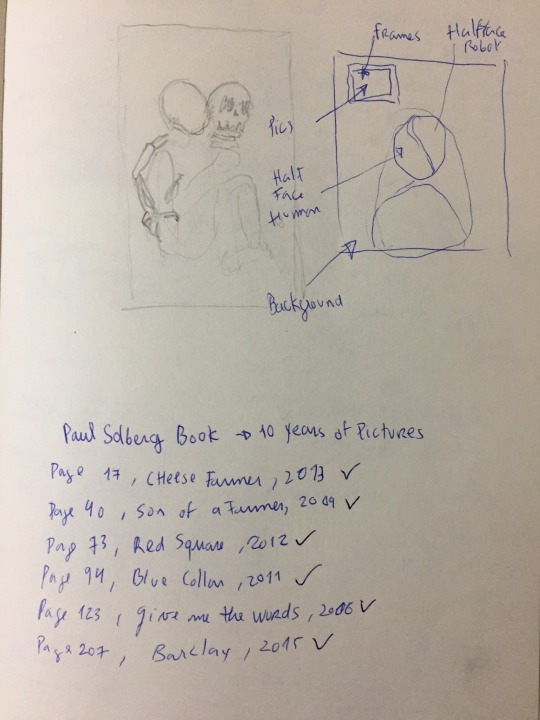 Frames
Halfface
Robot
Pics
Half
Face
Human
Background
Paul Solberg Book → 10 Years of Pictures
Page 17, CHeese Farmer, 2013 ✓
Page 40, Son of a Farmer, 2009 ✓
Page 73, Red Square, 2012 ✓
Page 94, Blue Collar, 2011 ✓
Page 123, give me the words, 2006 ✓
Page 207, Barclay, 2015 ✓